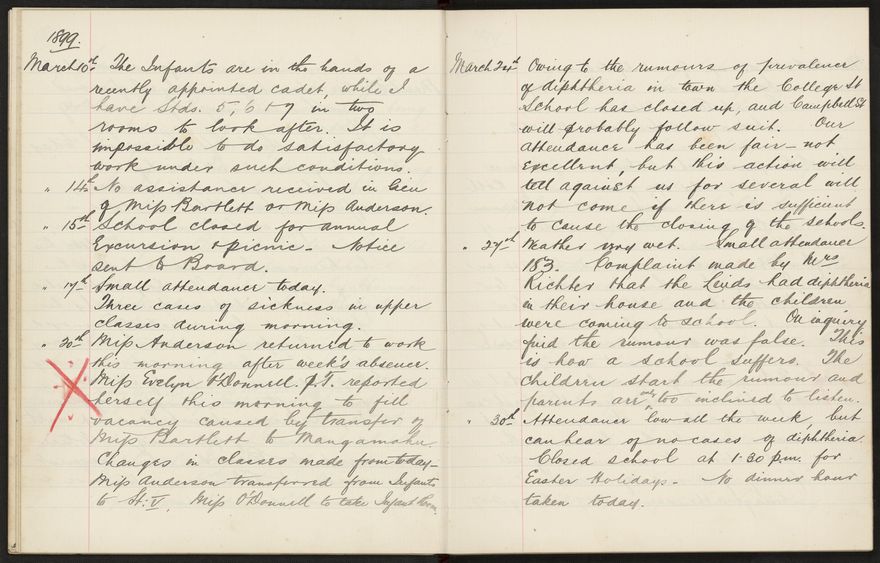 1899.
March 10th The Infants are in the hands of a
recently appointed cadet, while I
have Stds. 5, 6 & 7 in two
rooms to look after. It is
impossible to do satisfactory
work under such conditions.
" 14th No assistance received in lieu
of Miss Bartlett or Miss Anderson.
" 15th School closed for annual
Excursion & picnic - Notice
sent to Board.
" 17th Small attendance today.
Three cases of sickness in upper
classes during morning.
" 20th Miss Anderson returned to work
this morning after week's absence.
Miss Evelyn O'Donnell. P.T. reported
herself this morning to fill
vacancy caused by transfer of
Miss Bartlett to Mangamahu.
Changes in classes made from today -
Miss Anderson transferred from Infants
to St: V. Miss O'Donnell to take Infant Room.
March 24th Owing to the rumours of prevalence
of diphtheria in town the College St
School has closed up, and Campbell St
will probably follow suit. Our
attendance has been fair - not
excellent, but this action will
tell against us for several will
not come if there is sufficient
to cause the closing of the schools.
" 27th Weather very wet. Small attendance
183. Complaint made by Mrs
Richter that the had diphtheria
in their house and the children
were coming to school. On inquiry
find the rumour was false. This
is how a school suffers. The
children start the rumour and
parents are only too inclined to listen.
" 30th Attendance low all the week, but
can hear of no cases of diphtheria.
Closed school at 1.30 p.m. for
Easter Holidays - No dinner hour
taken today.